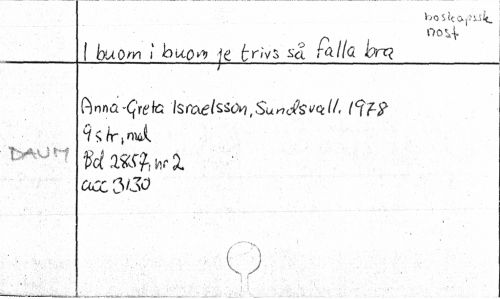 boskapssk
nost
I buom i buom je trivs så falla bra
Anna-Greta Israelsson, Sundsvall. 1978
9 str, mel
DAUM
Bd 2857, nr 2
acc 3130